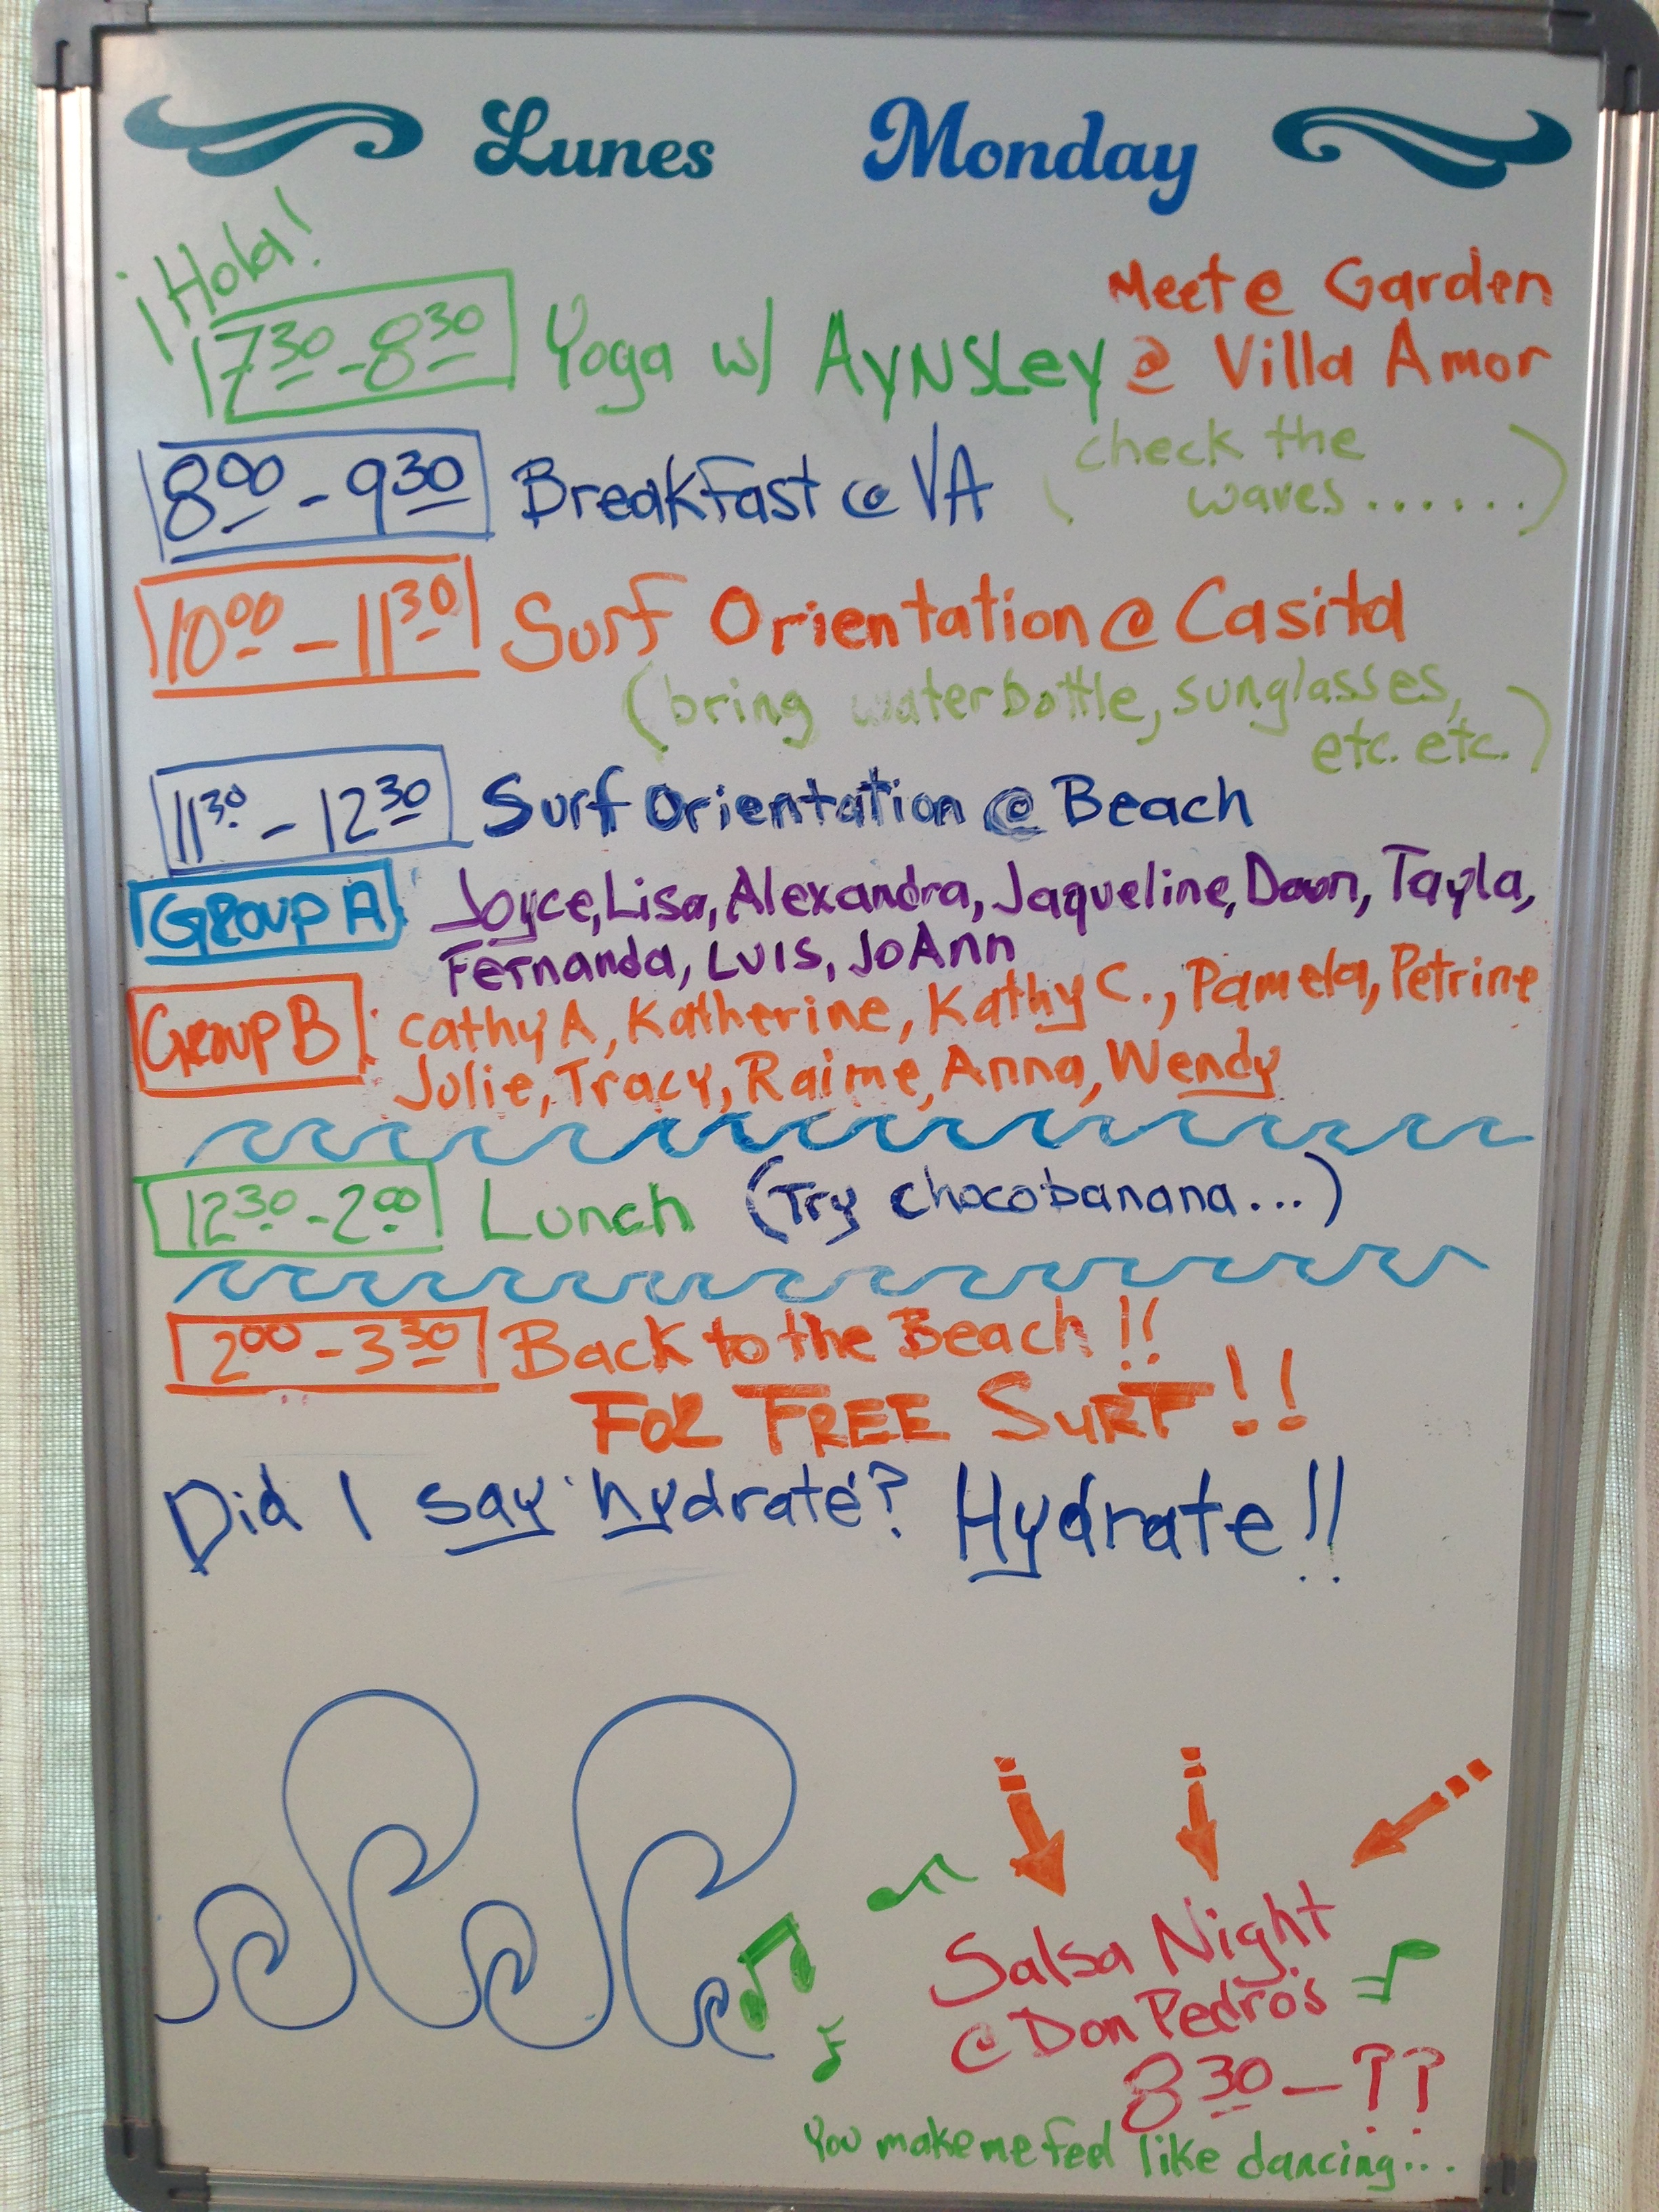 Lunes Monday
¡Hola!
Meet @ Garden
7:30 - 8:30 Yoga w/ Aynsley @ Villa Amor
8:00 - 9:30 Breakfast @ VA (check the
waves.......)
10:00 - 11:30 Surf Orientation @ Casita
(bring waterbottle, sunglasses,
etc. etc.)
11:30 - 12:30 Surf Orientation @ Beach
Group A: Joyce, Lisa, Alexandra, Jaqueline, Dawn, Tayla,
Fernanda, Luis, JoAnn
Group B: Cathy A, Katherine, Kathy C., Pamela, Petrine
Julie, Tracy, Raime, Anna, Wendy
12:30 - 2:00 Lunch (Try chocobanana...)
2:00 - 3:30 Back to the Beach!!
FOR FREE SURF!!
Did I say 'hydrate'? Hydrate!!
Salsa Night
@ Don Pedro's
8:30 - ??
You make me feel like dancing...